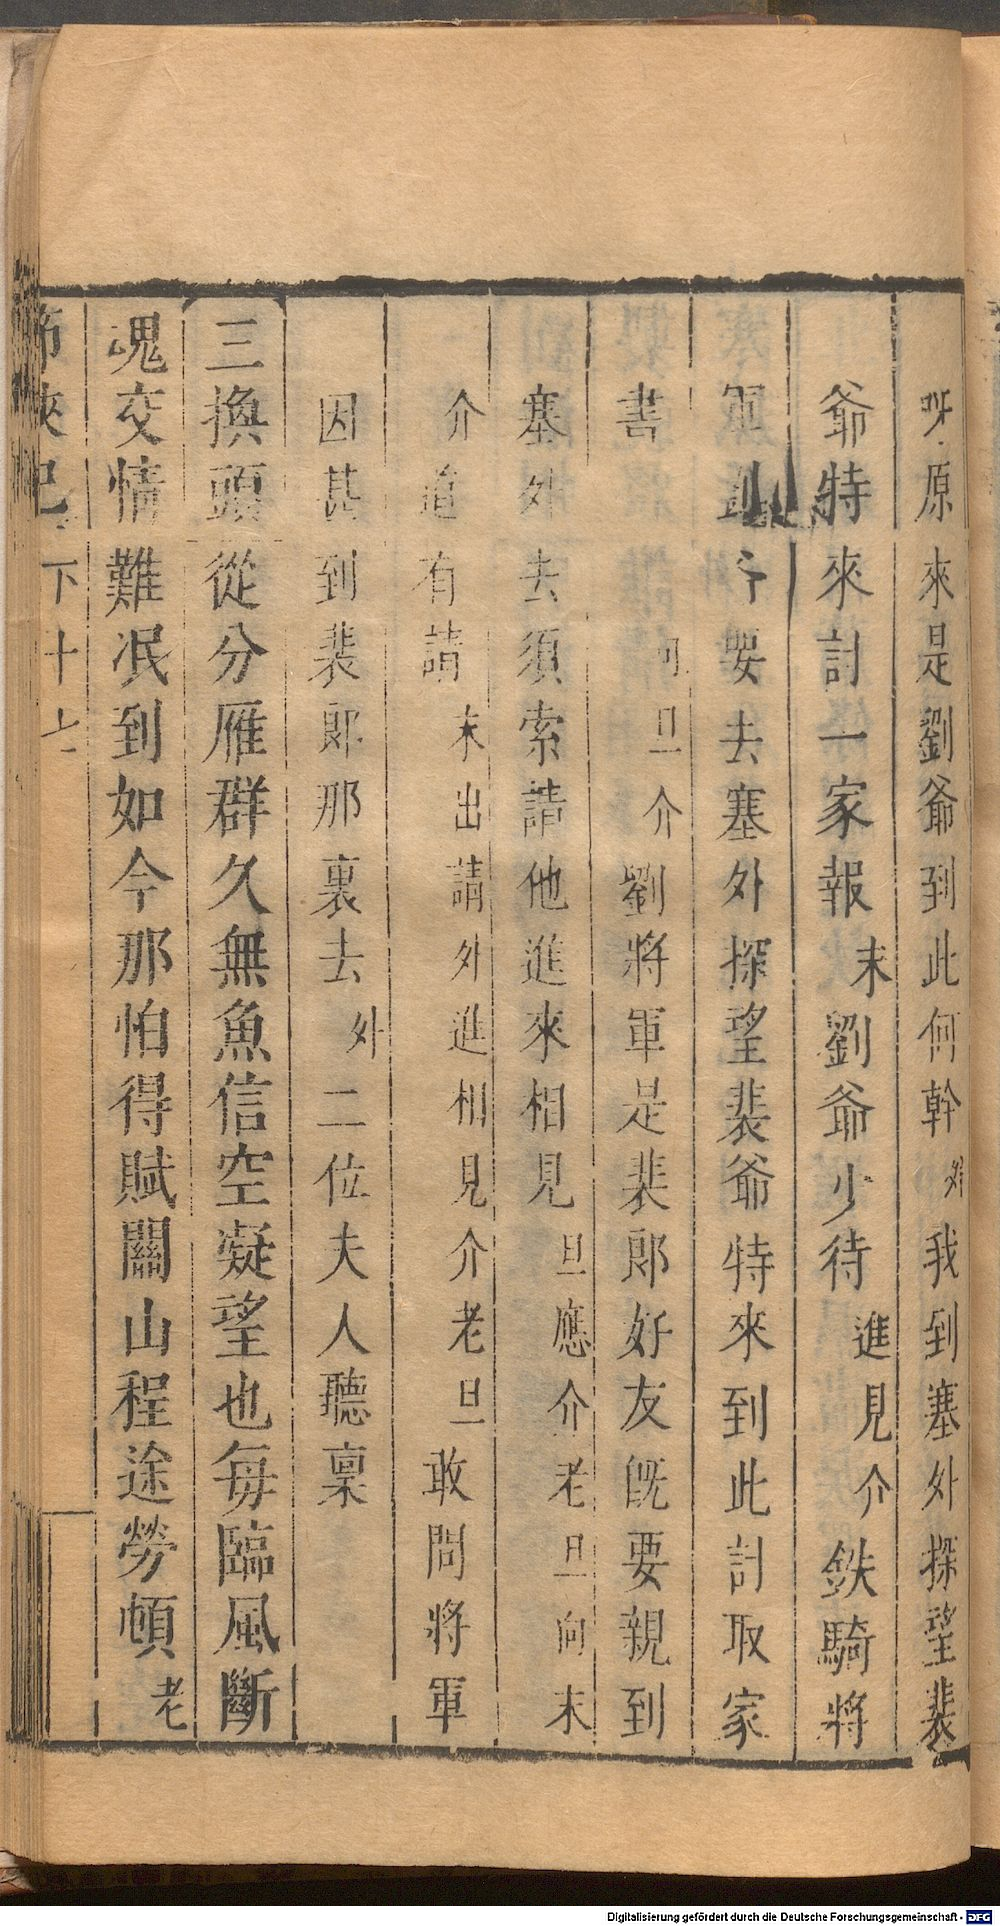 呀原來是劉爺到此何幹外我到塞外探望裴
爺特來討一家報末劉爺少待進見介鉄騎將
軍劉爺要去塞外探望裴爺特來到此討取家
書向旦介劉將軍是裴郎好友既要親到
塞外去須索請他進來相見旦應介老旦向末
介道有請末出請外進相見介老旦敢問將軍
因甚到裴郎那裏去外二位夫人聽稟
三換頭從分雁群久無魚信空凝望也每臨風斷
魂交情難泯到如今那怕得賦關山程途勞頓老
節俠記 下 十七
Digitalisierung gefördert durch die Deutsche Forschungsgemeinschaft - DFG